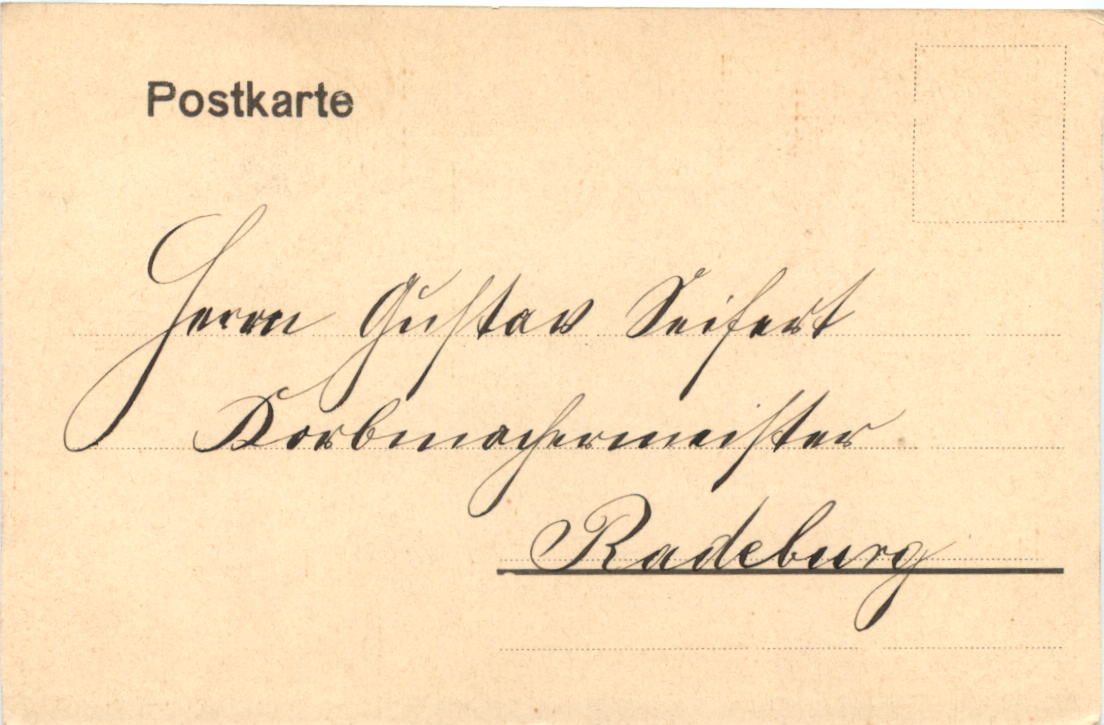 Postkarte
Herrn Gustav Seifert
Korbmachermeister
Radeburg